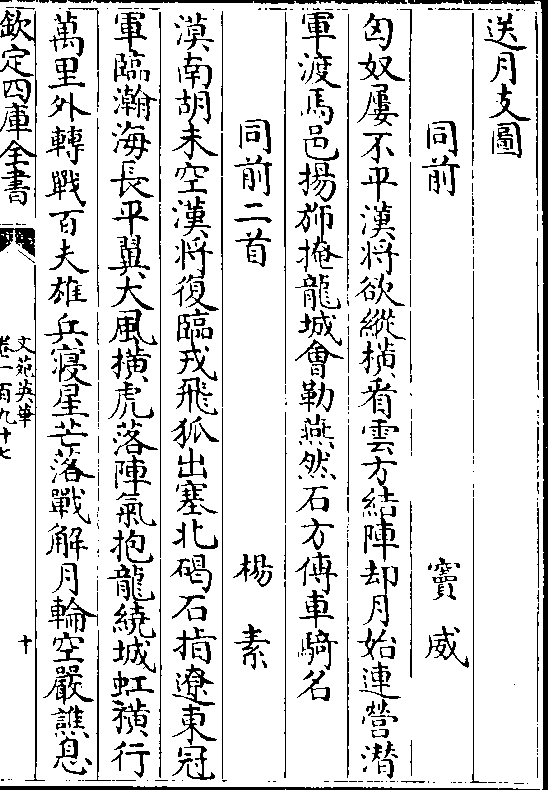 送月支圖
同前 竇威
匈奴屢不平漢將欲縱橫看雲方結陣却月始連營潜
軍渡馬邑揚斾掩龍城㑹勒燕然石方傳車騎名
同前二首 楊素
漠南胡未空漢將復臨戎飛狐出塞北碣石指遼東冠
軍臨瀚海長平翼大風橫虎落陣氣抱龍繞城虹横行
萬里外轉戰百夫雄兵寢星芒落戰解月輪空嚴譙息
欽定四庫全書
文苑英華
卷一百九十七
十